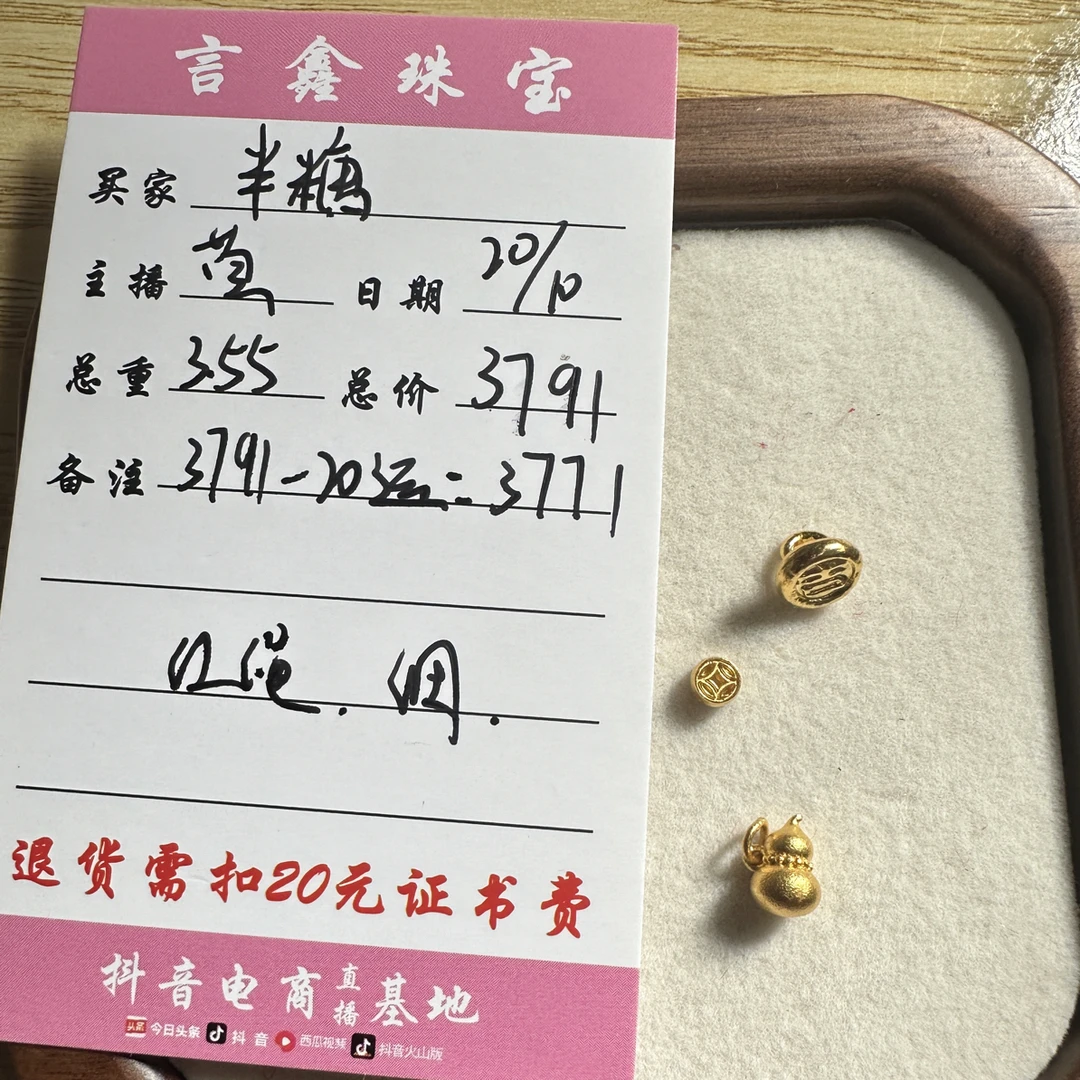 言鑫珠宝
买家 半糖
主播 日期 20/10
总重 3.55 总价 3791
备注 3791-20运=3771
红绳.
退货需扣20元证书费
抖音电商直播基地
头条 今日头条 抖音 西瓜视频 抖音火山版